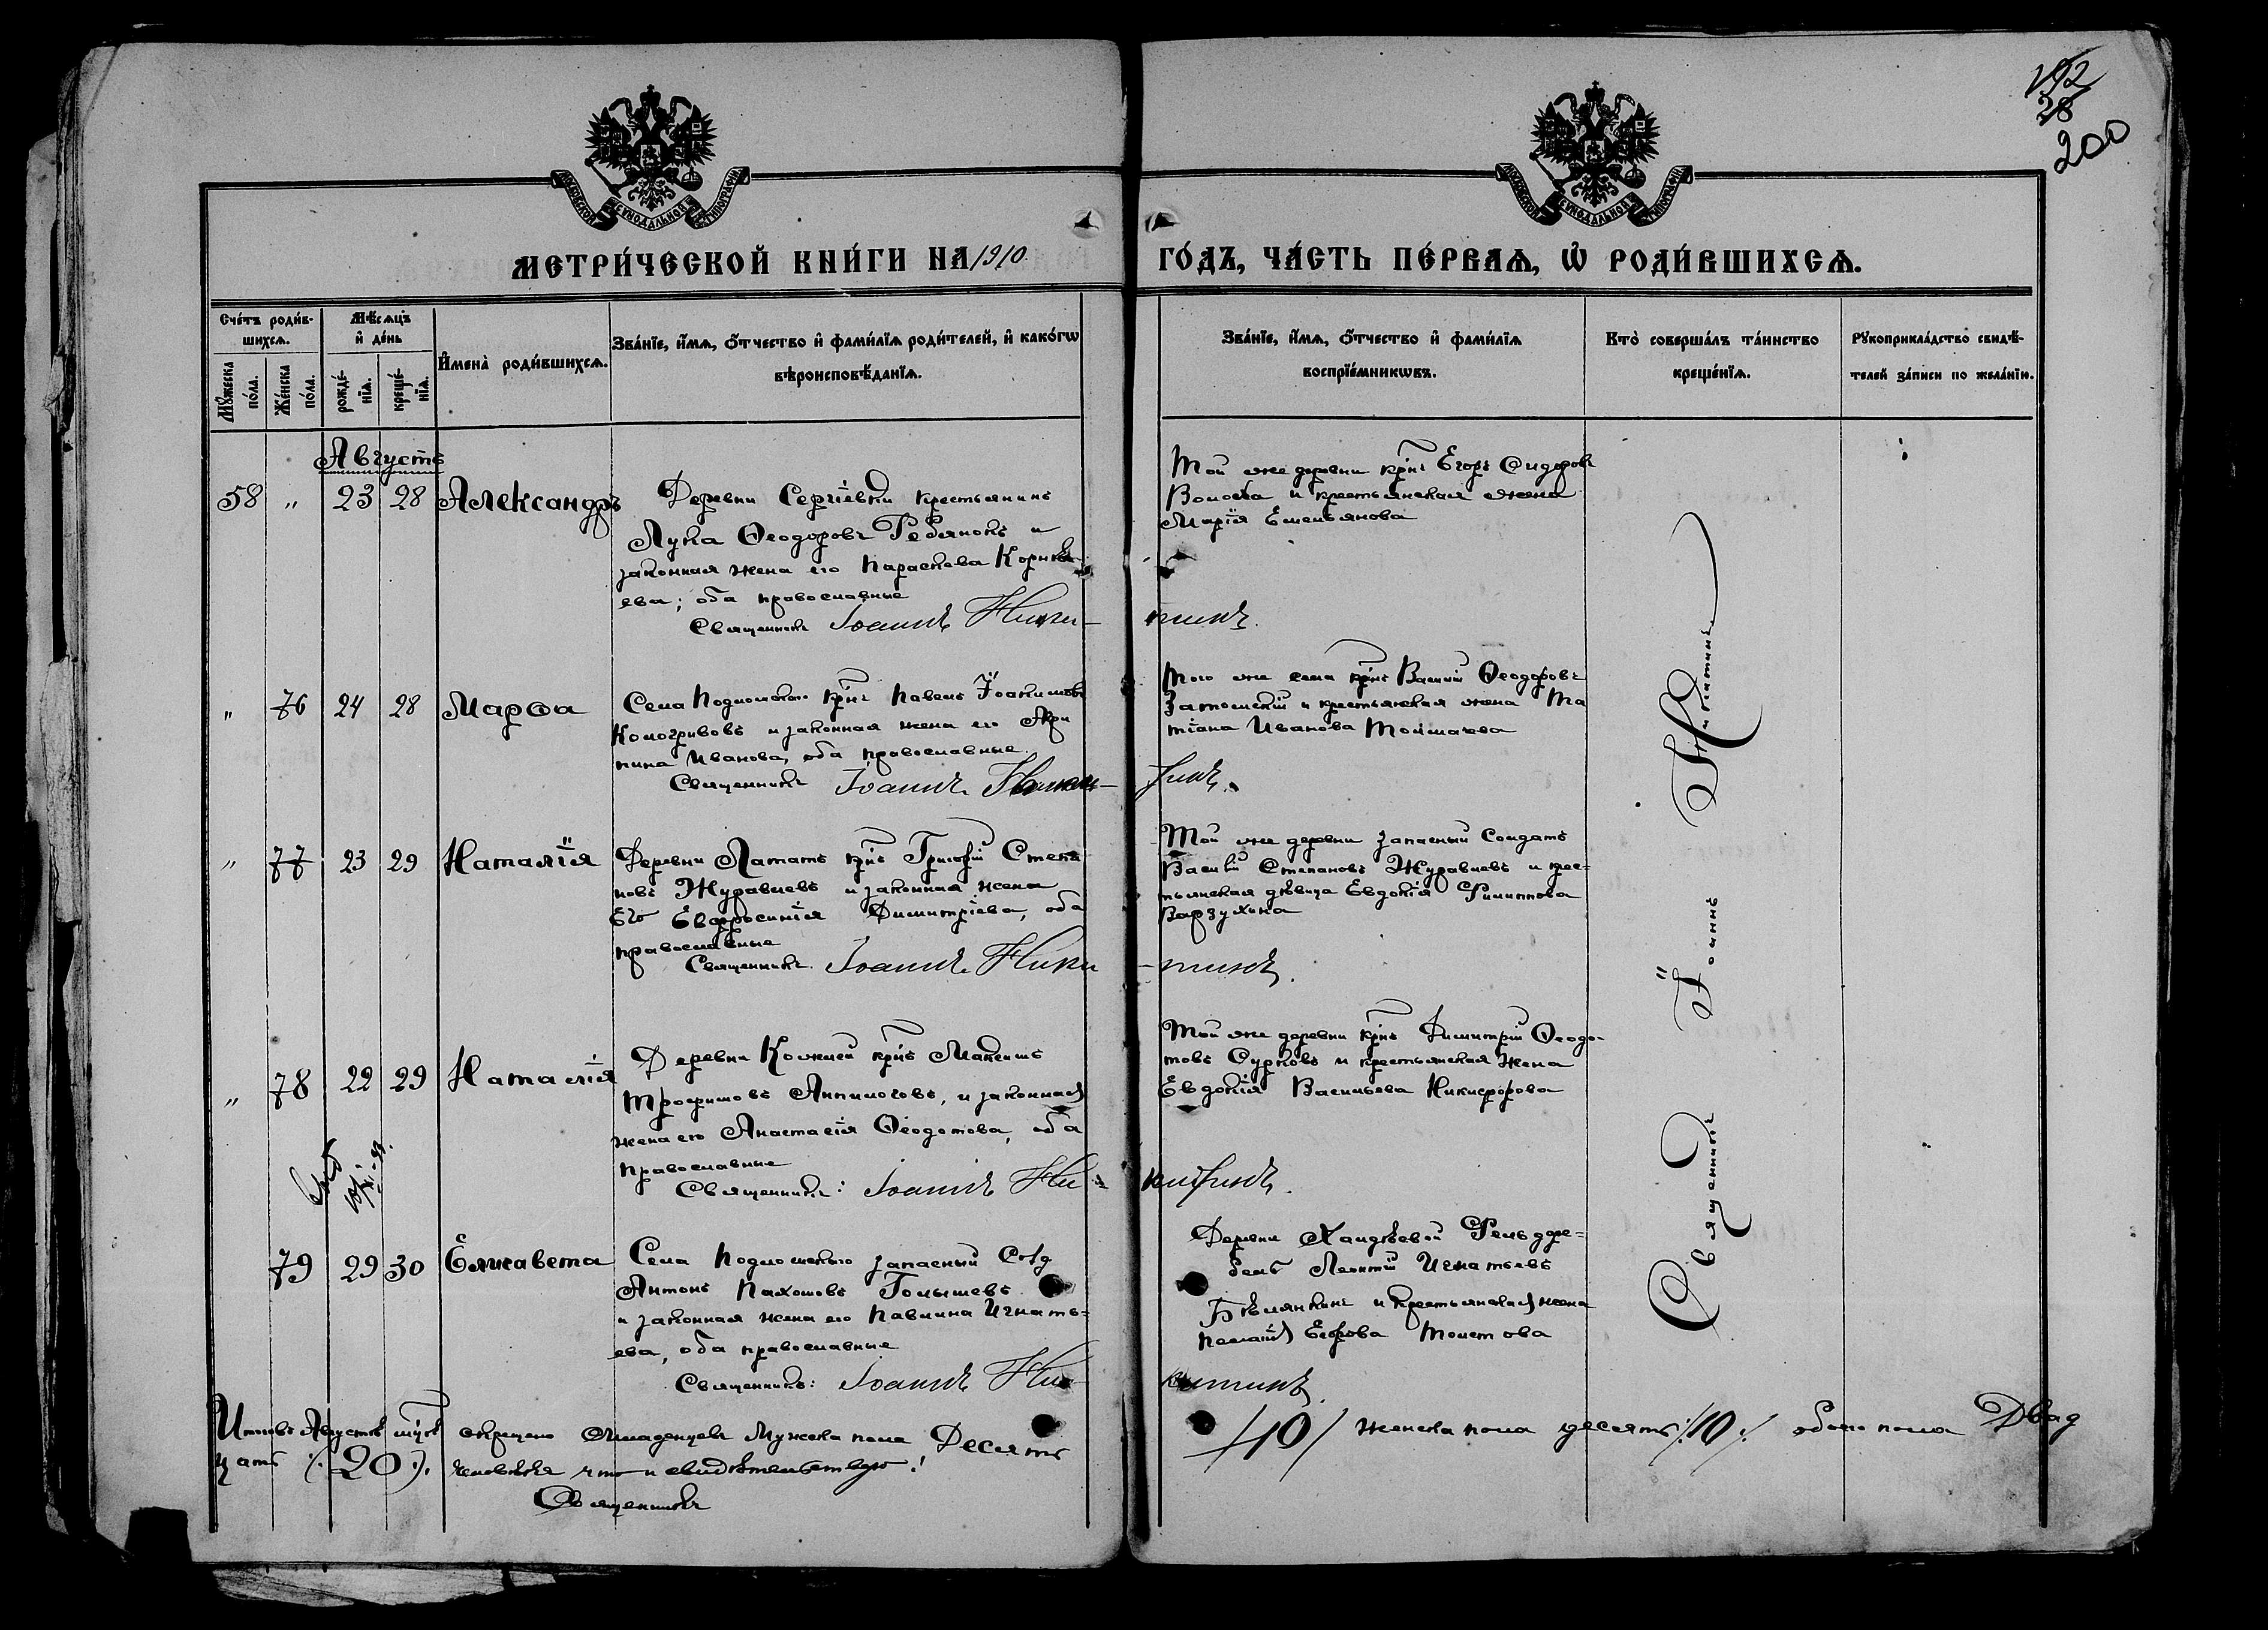 192
28
200
МОСКОВСКОЙ СУНОДАЛЬНОЙ ТИПОГРАФІИ
МОСКОВСКОЙ СУНОДАЛЬНОЙ ТИПОГРАФІИ
МЕТРИ́ЧЕСКОЙ КНИ́ГИ НА 1910 ГО́ДЪ, ЧА́СТЬ ПЕ́РВАѦ, Ѡ҆ РОДИ́ВШИХСѦ.
Сче́тъ роди́в-
шихсѧ.
Мꙋ́жеска
по́ла.
Же́нска
по́ла.
Мѣ́сѧцъ
и҆ де́нь
рожде́-
нїѧ.
креще́-
нїѧ.
И҆мена̀ роди́вшихсѧ.
Зва́нїе, и҆́мѧ, ѻ҆́тчество и҆ фами́лїѧ роди́телей, и҆ како́гѡ
вѣроисповѣ́данїѧ.
Зва́нїе, и҆́мѧ, ѻ҆́тчество и҆ фами́лїѧ
воспрїе́мникѡвъ.
Кто̀ соверша́лъ та́инство
креще́нїѧ.
Рꙋкоприкла́дство свидѣ́-
телей за́писи по жела́нїю.
Августъ
58 „ 23 28 Александръ
Деревни Сергіевки крестьянинъ
Лука Ѳеодоровъ Ребянокъ и
законная жена его Параскева Корнѣ-
ева; оба православные
Священникъ Іоаннъ Никитинъ.
Той же деревни крнъ Егоръ Сидоровъ
и крестьянская жена
Марія Емельянова
„ 76 24 28 Марѳа
Села Подломскаго крнъ Павелъ Іоакимовъ
Кологривовъ и законная жена его Агри
пина Иванова, оба православные.
Священникъ Іоаннъ Никитинъ.
Того же села крнъ Василій Ѳеодоровъ
Затомскій и крестьянская жена Та
тіана Иванова Толмачева
„ 77 23 29 Наталія
Деревни Лататъ крнъ Григорій Степа
новъ Журавлевъ и законная жена
Его Евфросинія Димитріева, оба
православные
Священникъ Іоаннъ Никитинъ.
Той же деревни запасный Солдатъ
Василій Степановъ Журавлевъ и крес-
тьянская дѣвица Евдокія Филиппова
Варзухина
„ 78 22 29 Наталія
Деревни крнъ Максимъ
Трофимовъ Анпилоговъ, и законная
жена его Анастасія Ѳеодотова, оба
православные
Священникъ: Іоаннъ Никитинъ.
Той же деревни крнъ Димитрій Ѳеодо-
товъ Сурковъ и крестьянская жена
Евдокія Васильева Никифорова
79 29 30 Елисавета
Села Подломскаго запасный Солд
Антонъ Пахомовъ Голышевъ
и законная жена его Павлина Игнать-
ева, оба православные
Священникъ: Іоаннъ Никитинъ.
Деревни Хандѣевой Фельдфе-
бель Леонтій Игнатьевъ
Бѣлянкинъ и крестьянская жена
Пелагія Егорова Толстова
Священникъ Іоаннъ Никитинъ
Итого въ Августѣ мцѣ окрещено Младенцевъ Мужеска пола Десять /10/ женска пола десять /:10:/ обоего пола Двад
цать /:20:/. человѣкъ что и свидѣтельствую:
Священникъ